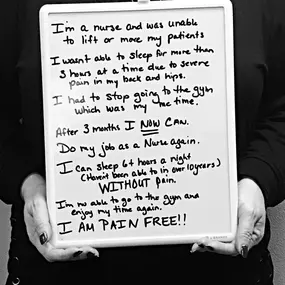 I'm a nurse and was unable
to lift or move my patients
I wasn't able to sleep for more than
3 hours at a time due to severe
pain in my back and hips.
I had to stop going to the gym
which was my me time.
After 3 months I NOW CAN.
Do my job as a Nurse again.
I can sleep 6+ hours a night
(Haven't been able to in over 10 years)
WITHOUT pain.
I'm now able to go to the gym and
enjoy my time again.
I AM PAIN FREE!!